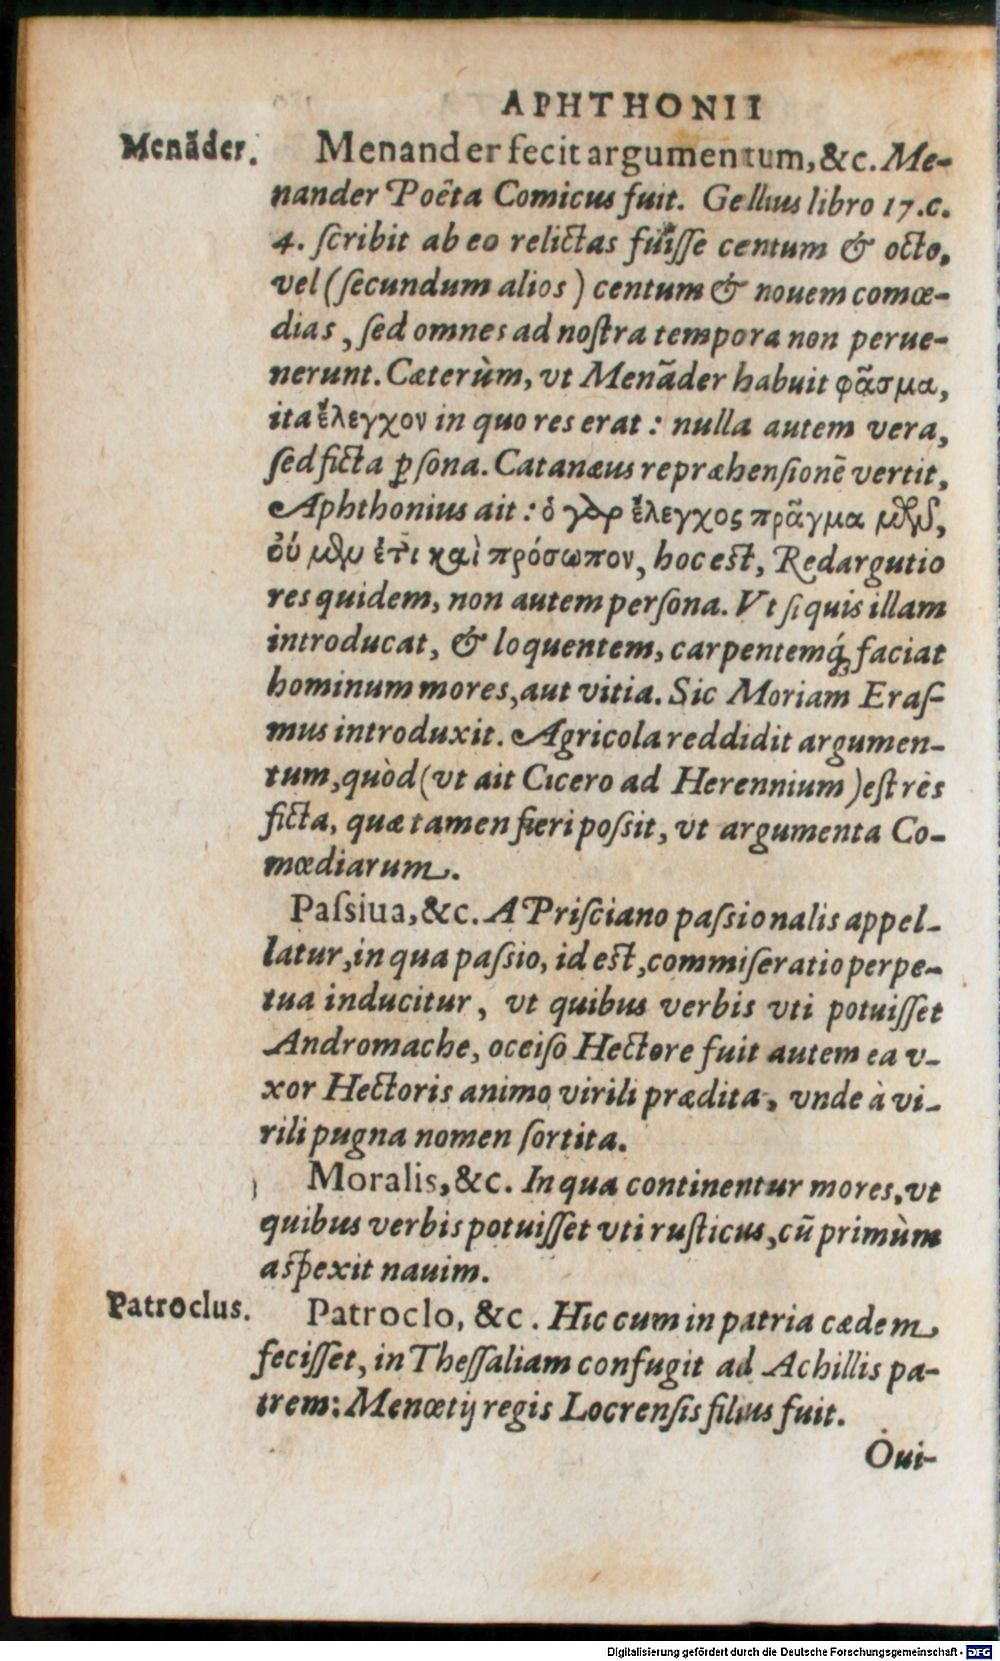 APHTHONII
Menãder.
Menander fecit argumentum, &c. Me-
nander Poêta Comicus fuit. Gellius libro 17.c.
4. ſcribit ab eo relictas fuiſſe centum & octo,
vel (ſecundum alios) centum & nouem comœ-
dias, ſed omnes ad noſtra tempora non perue-
nerunt. Cæterùm, vt Menãder habuit φᾶσμα,
ita ἔλεγχον in quo res erat: nulla autem vera,
ſed ficta ꝑſona. Catanæus repræhenſionẽ vertit,
Aphthonius ait: ὁ γὰρ ἔλεγχος πρᾶγμα μὲν,
οὐ μὴν ἔτι καὶ πρόσωπον, hoc eſt, Redargutio
res quidem, non autem perſona. Vt ſi quis illam
introducat, & loquentem, carpentemq́; faciat
hominum mores, aut vitia. Sic Moriam Eraſ-
mus introduxit. Agricola reddidit argumen-
tum, quòd (vt ait Cicero ad Herennium) eſt res
ficta, quæ tamen fieri poſsit, vt argumenta Co-
mœdiarum.
Paſsiua, &c. A Priſciano paſsionalis appel-
latur, in qua paſsio, id eſt, commiſeratio perpe-
tua inducitur, vt quibus verbis vti potuiſſet
Andromache, oceiſo Hectore fuit autem ea v-
xor Hectoris animo virili prædita, vnde à vi-
rili pugna nomen ſortita.
Moralis, &c. In qua continentur mores, vt
quibus verbis potuiſſet vti ruſticus, cũ primùm
aſpexit nauim.
Patroclus.
Patroclo, &c. Hic cum in patria cædem
feciſſet, in Theſſaliam confugit ad Achillis pa-
trem: Menœtij regis Locrenſis filius fuit.
Oui-
Digitalisierung gefördert durch die Deutsche Forschungsgemeinschaft - DFG